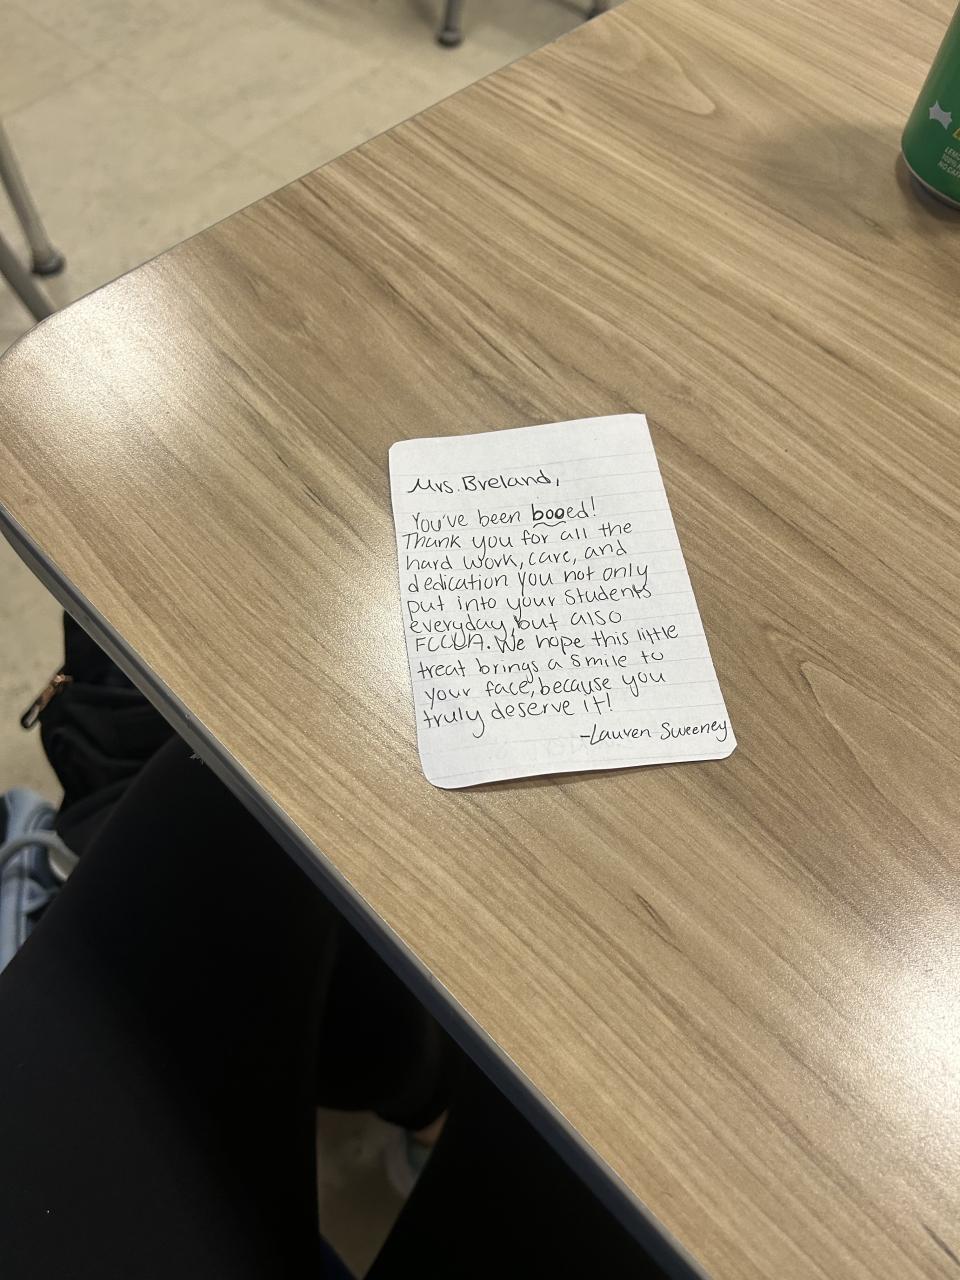 Mrs. Breland,
You've been booed!
Thank you for all the
hard work, care, and
dedication you not only
put into your students
everyday, but also
FCCLA. We hope this little
treat brings a smile to
your face, because you
truly deserve it!
-Lauren Sweeney